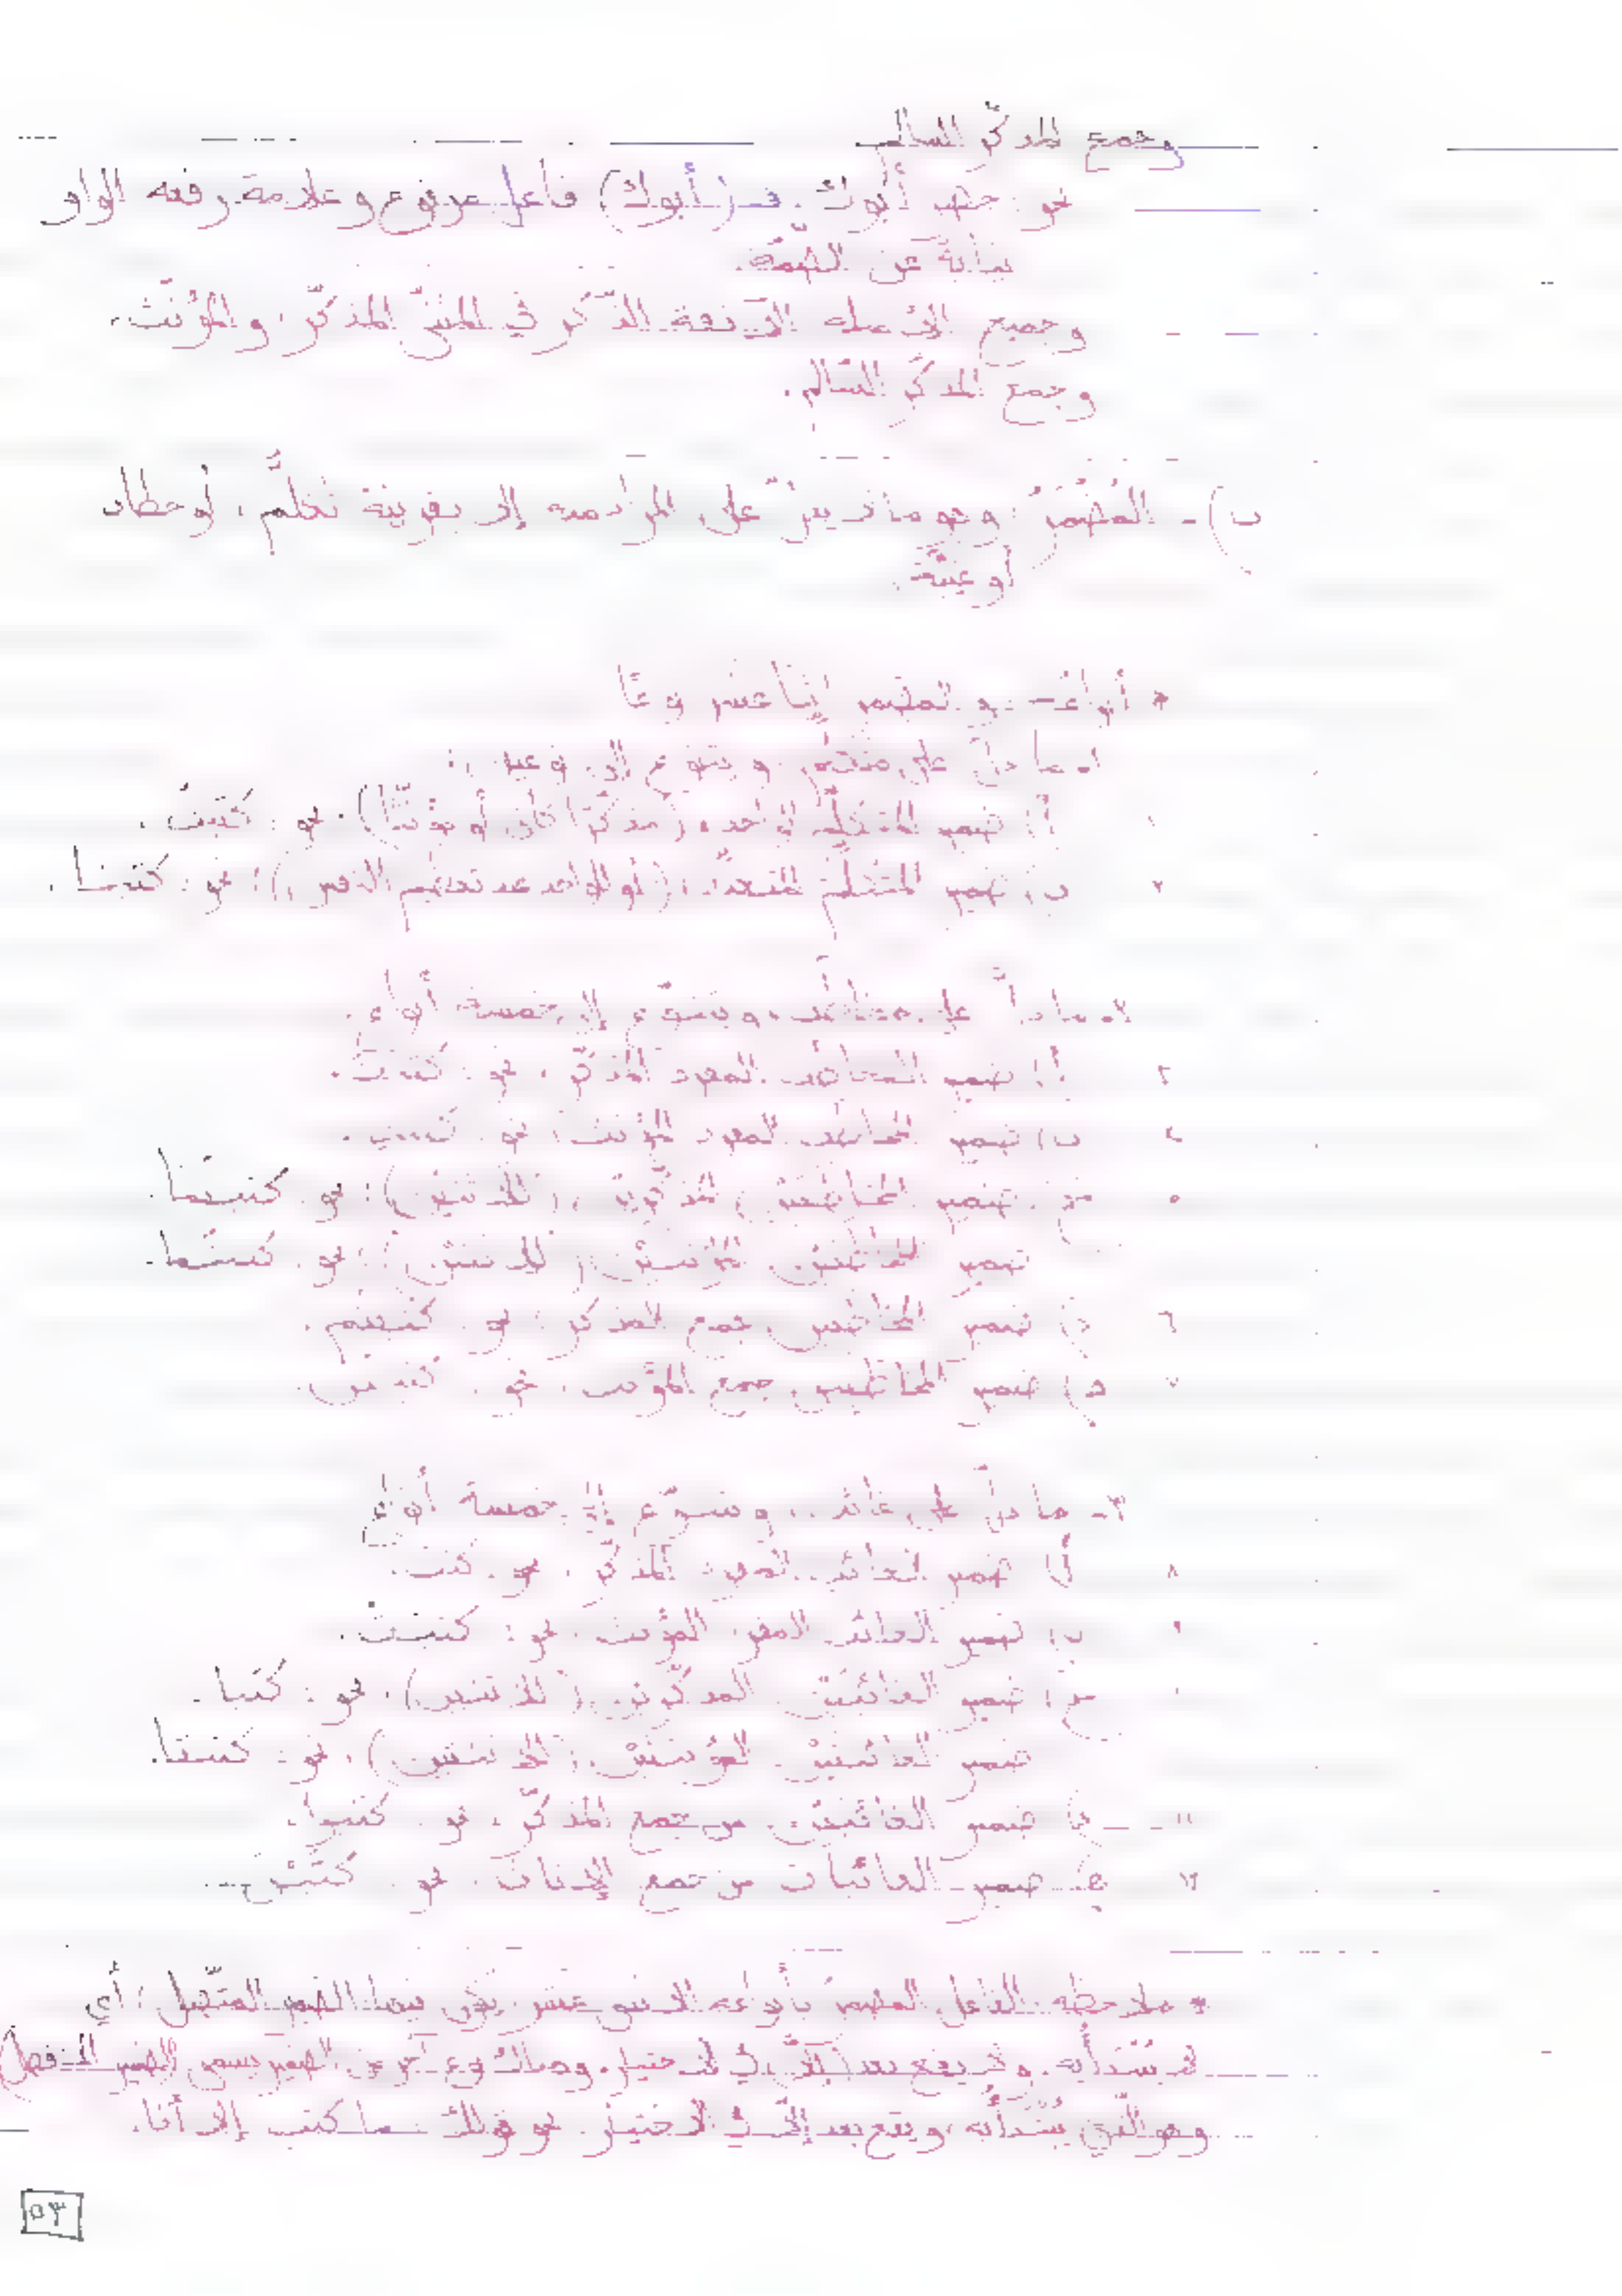 وجمع المذكّر السالم
نحو: حضر أبوك. فـ (أبوك) فاعل مرفوع وعلامة رفعه الواو
نيابةً عن الضمّة.
وجميع الأمثلة الآنفة الذّكر في المثنّى المذكّر، والمؤنّث،
وجمع المذكّر السّالم.
ب) - المُضْمَرُ: وهو ما لا يدلّ على المراد منه إلا بقرينة تكلّم، أو خطاب
أو غيبة.
* أنواعه - المضمر اثنا عشر نوعًا
١- ما دلّ على متكلّم، ويتنوع إلى نوعين:
١ أ) ضمير المتكلّم الواحد، (مذكّرًا كان أو مؤنّثًا)، نحو: كتبتُ.
٢ ب) ضمير المتكلّم المتعدّد، (أو الواحد عند تعظيم النفس)؛ نحو: كتبنا.
٢- ما دلّ على مخاطب، ويتنوّع إلى خمسة أنواع.
٣ أ) ضمير المخاطب المفرد المذكّر، نحو: كتبتَ.
٤ ب) ضمير المخاطب المفرد المؤنث، نحو: كتبتِ.
٥ جـ) ضمير المخاطبَيْن المذكّرين، (للاثنين)؛ نحو: كتبتما.
ضمير المخاطبتين المؤنثتين (للاثنتين)؛ نحو: كتبتما.
٦ د) ضمير المخاطبين جمع المذكر؛ نحو: كتبتم.
٧ هـ) ضمير المخاطبين جمع المؤنث، نحو: كتبتنّ.
٣- ما دلّ على غائب، ويتنوّع إلى خمسة أنواع
٨ أ) ضمير الغائب المفرد المذكّر، نحو: كتب.
٩ ب) ضمير الغائب المفرد المؤنث، نحو: كتبتْ.
١٠ جـ) ضمير الغائبَيْن المذكّرين (للاثنين)، نحو: كتبا.
ضمير الغائبتيْن المؤنثتيْن (للاثنتين)، نحو: كتبتا.
١١ د) ضمير الغائبين من جمع المذكّر، نحو: كتبوا.
١٢ هـ) ضمير الغائبات من جمع الإناث، نحو: كتبْنَ.
* ملاحظة: الفاعل المضمر بأنواعه الاثني عشر، يكون فيها الضمير المتّصل، أي
لا يُبتدأ به، ولا يقع بعد (إلّا) في الاختيار، وهناك نوع آخر من الضمير يسمى الضمير المنفصل
وهو الّذي يُبْتدأُ به، ويقع بعد إلّا في الاختيار. نحو قولك: ما كتب إلا أنا.
٥٣